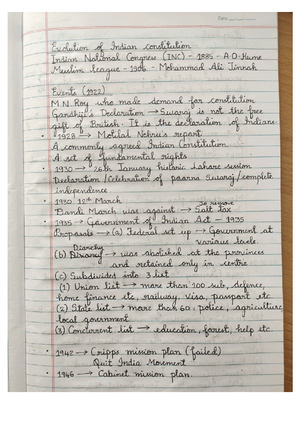 Date
Evolution of Indian constitution
Indian National Congress (INC) - 1885 - A·O·Hume
Muslim league - 1906 - Mohammad Ali Jinnah
Events (1922)
M.N. Roy who made demand for constitution
Gandhiji's Declaration → Swaraj is not the free
gift of British. It is the declaration of Indians
1928 → Motilal Nehru's report
A commonly agreed Indian Constitution
A set of fundamental rights
• 1930 → 26th January historic Lahore session
Declaration / Celebration of poorna Swaraj / complete
independence
• 1930 12th March
To remove
Dandi March was against → Salt tax
• 1935 → Government of Indian Act - 1935
Proposals → (a) Federal set up → Government at
various levels
Diarchy
(b) → was abolished at the provinces
and retained only in centre
(c) Subdivided into 3 list
(1) Union list → more than 100 sub, defence,
home finance etc, railway, visa, passport etc
(2) State list → more than 60, police, agriculture,
local government
(3) Concurrent list → education, forest, help etc
• 1942 → Cripps mission plan (failed)
Quit India Movement
• 1946 → Cabinet mission plan.